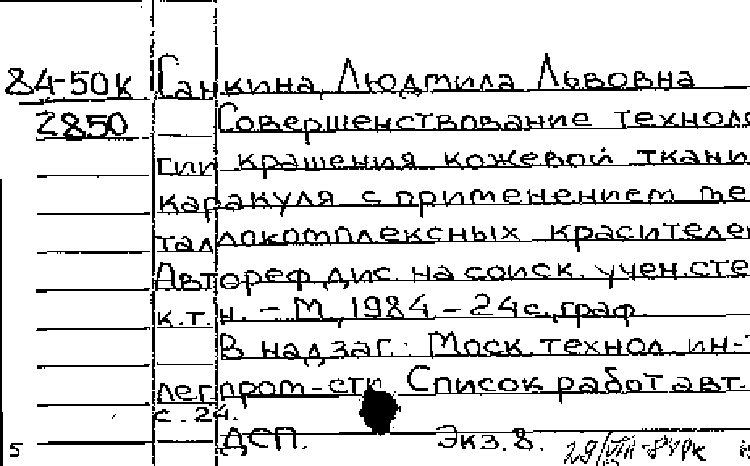 84-50к Ганкина, Людмила Львовна
2850 Совершенствование техноло
гии крашения кожевой ткани
каракуля с применением ме
таллокомплексных красителей
Автореф. дис. на соиск. учен. сте
к.т.н. - М., 1984 - 24 с., граф.
В надзаг.: Моск. технол. ин-т
лег. пром-сти. Список работ авт.
с. 24.
5 ДСП. Экз. 8.